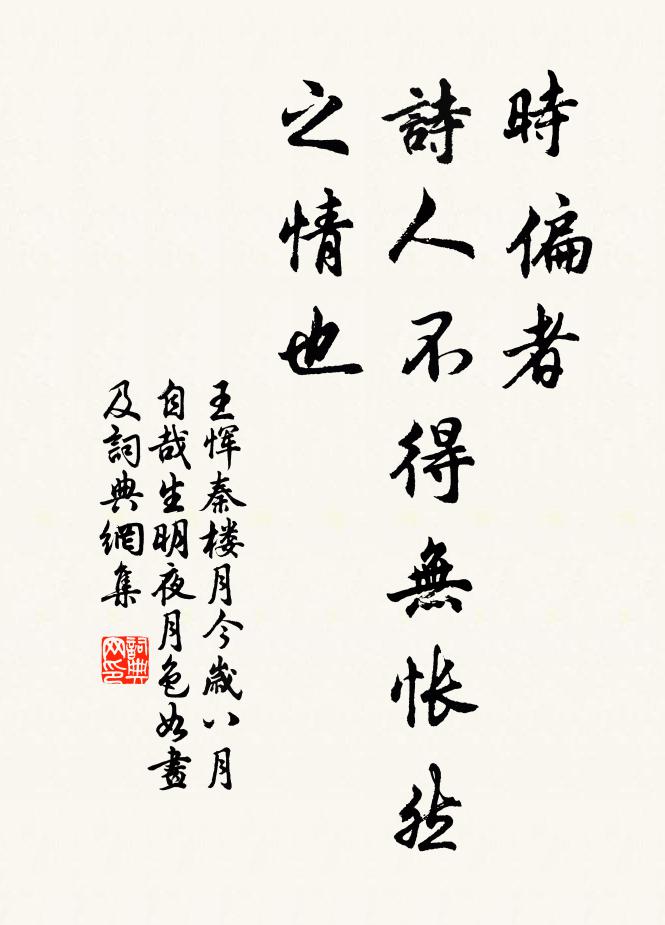 時偏者
詩人不得無悵然
之情也
王恽秦楼月今歲八月
自哉生明夜月色如晝
及詞典網集
詞典
网印